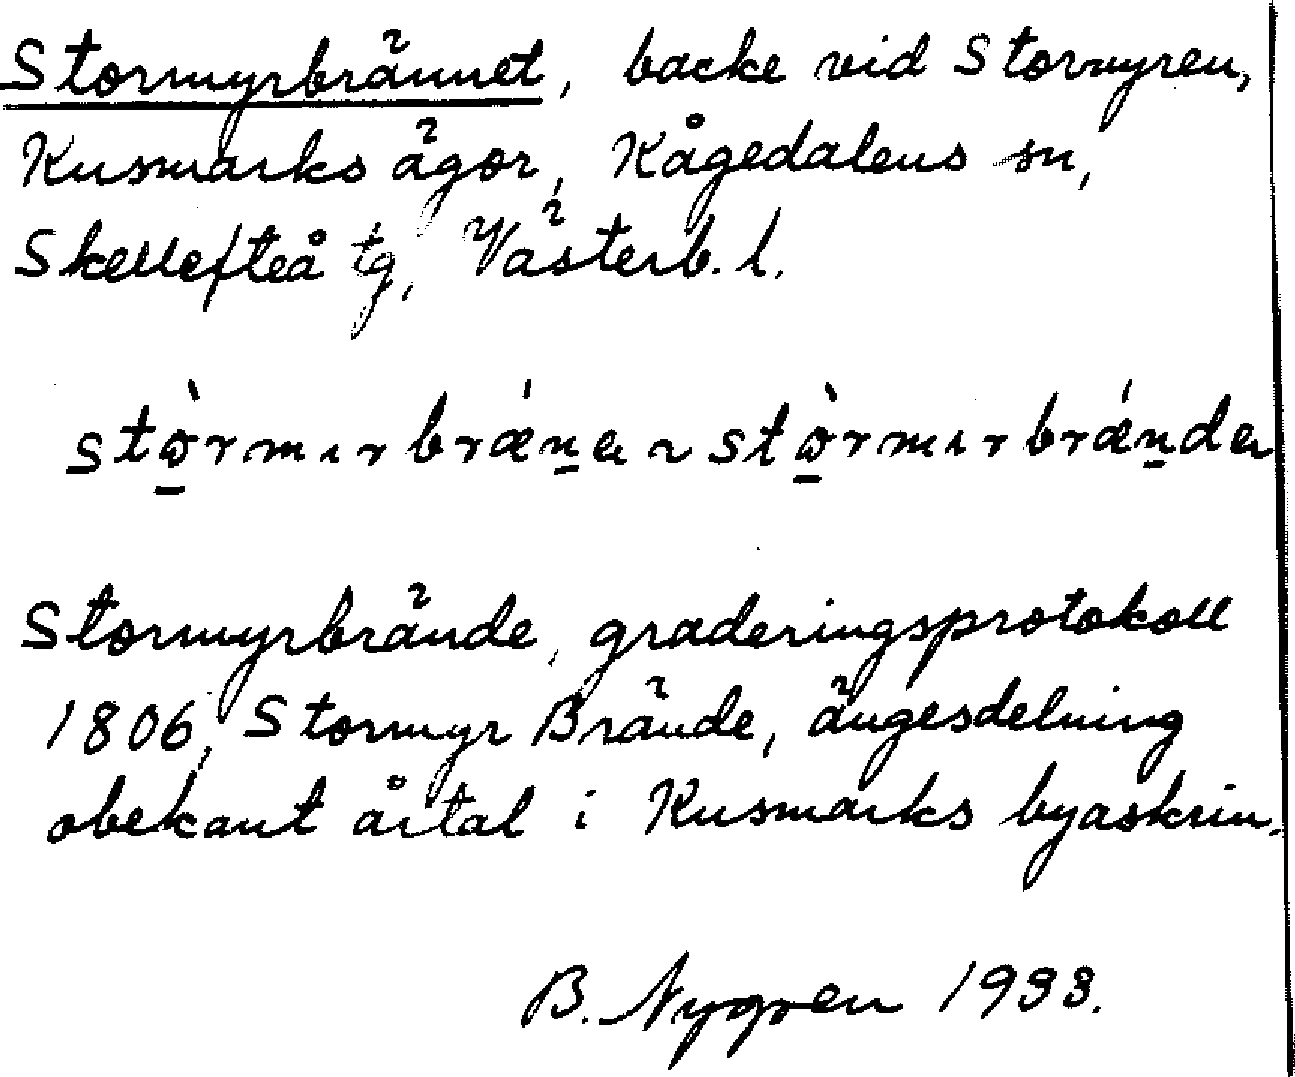 Stormyrbrännet, backe vid Stormyren,
Kusmarks ägor, Kågedalens sn,
Skellefteå tg, Västerb. l.
stò̱rmɩrbrǽṉa ~ stò̱rmɩrbrǽṉda
Stormyrbrände, graderingsprotokoll
1806, Stormyr Brände, ängesdelning
obekant årtal i Kusmarks byaskrin.
B. Nygren 1933.